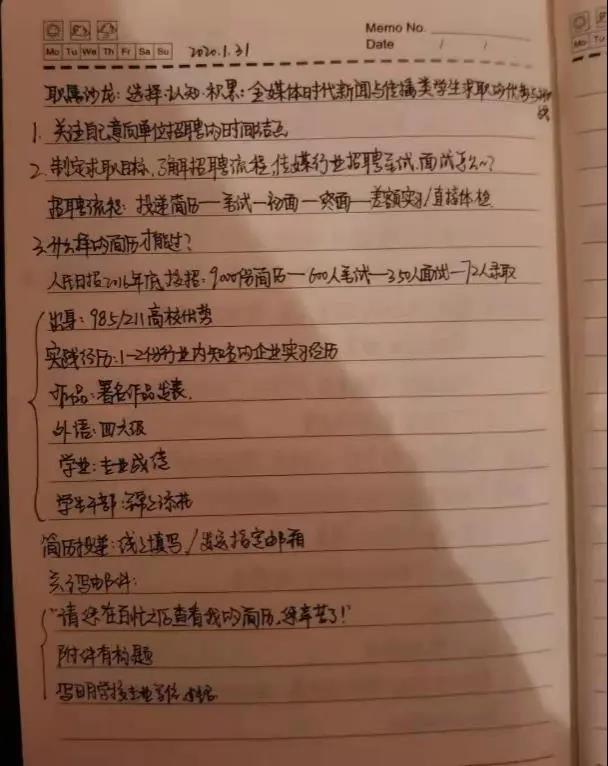 Memo No.
Mo Tu We Th Fr Sa Su 2020.1.31 Date / /
职属沙龙：选择·认知·积累：全媒体时代新闻与传播类学生求职的优势与
1. 关注自己意向单位招聘的时间结点
2. 制定求职目标，了解招聘流程，传媒行业招聘笔试、面试怎么~？
招聘流程：投递简历—笔试—初面—终面—差额实习/直接体检
3. 什么样的简历才能过？
人民日报2016年底校招：9000份简历—600人笔试—350人面试—72人录取
出身：985/211高校优势
实践经历：1-2份行业内知名的企业实习经历
作品：署名作品发表.
外语：四六级
学业：专业成绩
学生干部：锦上添花
简历投递：线上填写/发送指定邮箱
会写邮件：
"请您在百忙之后查看我的简历，您辛苦了！"
附件有标题
写明学校专业